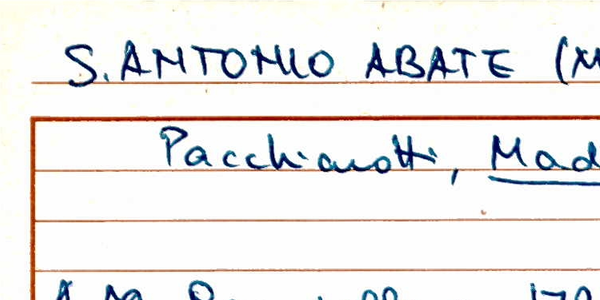 S. ANTONIO ABATE (M
Pacchiarotti, Mad